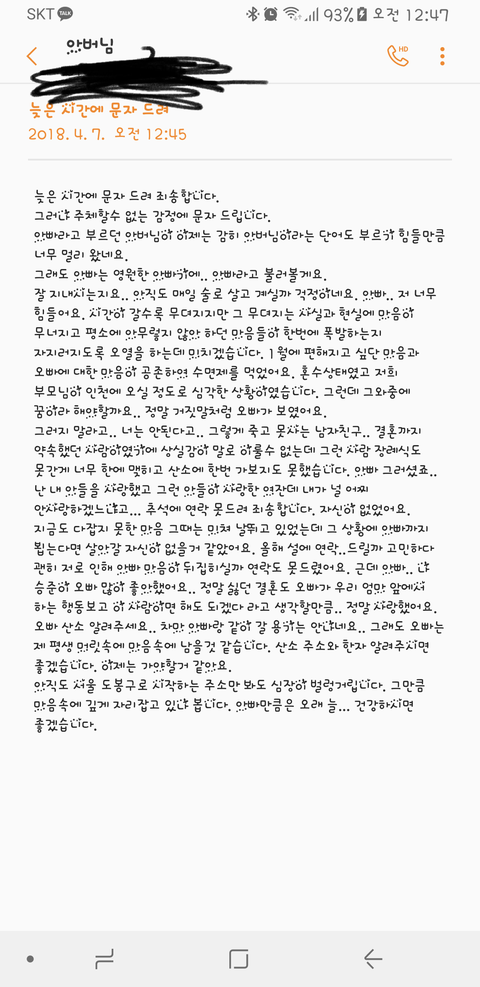 SKT TALK 93% 오전 12:47
아버님
HD
늦은 시간에 문자 드려
2018. 4. 7. 오전 12:45
늦은 시간에 문자 드려 죄송합니다.
그러나 주체할수 없는 감정에 문자 드립니다.
아빠라고 부르던 아버님이 이제는 감히 아버님이라는 단어도 부르기 힘들만큼
너무 멀리 왔네요.
그래도 아빠는 영원한 아빠기에.. 아빠라고 불러볼게요.
잘 지내시는지요.. 아직도 매일 술로 살고 계실까 걱정이네요. 아빠.. 저 너무
힘들어요. 시간이 갈수록 무뎌지지만 그 무뎌지는 사실과 현실에 마음이
무너지고 평소에 아무렇지 않아 하던 마음들이 한번에 폭발하는지
자지러지도록 오열을 하는데 미치겠습니다. 1월에 편해지고 싶단 마음과
오빠에 대한 마음이 공존하여 수면제를 먹었어요. 혼수상태였고 저희
부모님이 인천에 오실 정도로 심각한 상황이였습니다. 그런데 그와중에
꿈이라 해야할까요.. 정말 거짓말처럼 오빠가 보였어요.
그러지 말라고.. 너는 안된다고.. 그렇게 죽고 못사는 남자친구.. 결혼까지
약속했던 사람이였기에 상실감이 말로 이룰수 없는데 그런 사람 장례식도
못간게 너무 한에 맥히고 산소에 한번 가보지도 못했습니다. 아빠 그러셨죠..
난 내 아들을 사랑했고 그런 아들이 사랑한 여잔데 내가 널 어찌
안사랑하겠느냐고... 추석에 연락 못드려 죄송합니다. 자신이 없었어요.
지금도 다잡지 못한 마음 그때는 미쳐 날뛰고 있었는데 그 상황에 아빠까지
뵙는다면 살아갈 자신이 없을거 같았어요. 올해 설에 연락..드릴까 고민하다
괜히 저로 인해 아빠 마음이 뒤집히실까 연락도 못드렸어요. 근데 아빠.. 나
승준이 오빠 많이 좋아했어요.. 정말 싫던 결혼도 오빠가 우리 엄마 앞에서
하는 행동보고 이 사람이면 해도 되겠다 라고 생각할만큼.. 정말 사랑했어요.
오빠 산소 알려주세요.. 차마 아빠랑 같이 갈 용기는 안나네요.. 그래도 오빠는
제 평생 머릿속에 마음속에 남을것 같습니다. 산소 주소와 한자 알려주시면
좋겠습니다. 이제는 가야할거 같아요.
아직도 서울 도봉구로 시작하는 주소만 봐도 심장이 벌렁거립니다. 그만큼
마음속에 깊게 자리잡고 있나 봅니다. 아빠만큼은 오래 늘... 건강하시면
좋겠습니다.